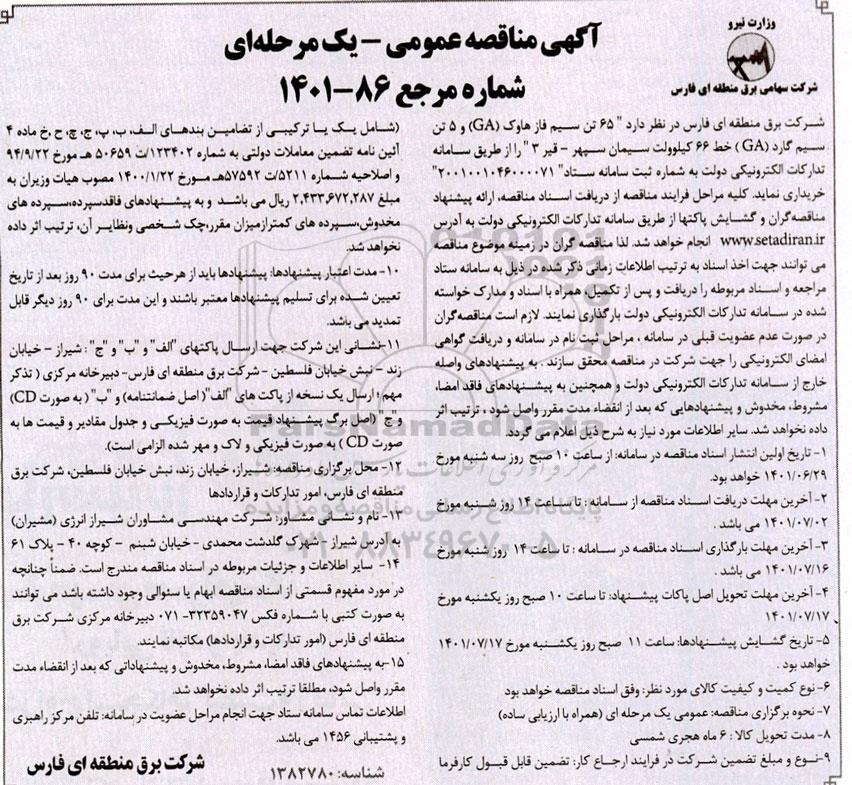 وزارت نیرو
شرکت سهامی برق منطقه ای فارس
آگهی مناقصه عمومی – یک مرحله‌ای
شماره مرجع ۸۶-۱۴۰۱
شرکت برق منطقه ای فارس در نظر دارد " ۶۵ تن سیم فاز هاوک (GA) و ۵ تن
سیم گارد (GA ) خط ۶۶ کیلوولت سیمان سپهر – قیر ۳ " را از طریق سامانه
تدارکات الکترونیکی دولت به شماره ثبت سامانه ستاد" ۲۰۰۱۰۰۱۰۴۶۰۰۰۰۷۱"
خریداری نماید. کلیه مراحل فرایند مناقصه از دریافت اسناد مناقصه، ارائه پیشنهاد
مناقصه‌گران و گشایش پاکتها از طریق سامانه تدارکات الکترونیکی دولت به آدرس
www.setadiran.ir انجام خواهد شد. لذا مناقصه گران در زمینه موضوع مناقصه
می توانند جهت اخذ اسناد به ترتیب اطلاعات زمانی ذکر شده در ذیل به سامانه ستاد
مراجعه و اسناد مربوطه را دریافت و پس از تکمیل، همراه با اسناد و مدارک خواسته
شده در سامانه تدارکات الکترونیکی دولت بارگذاری نمایند. لازم است مناقصه‌گران
در صورت عدم عضویت قبلی در سامانه ، مراحل ثبت نام در سامانه و دریافت گواهی
امضای الکترونیکی را جهت شرکت در مناقصه محقق سازند . به پیشنهادهای واصله
خارج از سامانه تدارکات الکترونیکی دولت و همچنین به پیشنهادهای فاقد امضا،
مشروط، مخدوش و پیشنهادهایی که بعد از انقضاء مدت مقرر واصل شود ، ترتیب اثر
داده نخواهد شد. سایر اطلاعات مورد نیاز به شرح ذیل اعلام می گردد.
۱- تاریخ اولین انتشار اسناد مناقصه در سامانه: از ساعت ۱۰ صبح روز سه شنبه مورخ
۱۴۰۱/۰۶/۲۹ خواهد بود.
۲- آخرین مهلت دریافت اسناد مناقصه از سامانه: تا ساعت ۱۴ روز شنبه مورخ
۱۴۰۱/۰۷/۰۲ می باشد .
۳- آخرین مهلت بارگذاری اسناد مناقصه در سامانه : تا ساعت ۱۴ روز شنبه مورخ
۱۴۰۱/۰۷/۱۶ می باشد .
۴- آخرین مهلت تحویل اصل پاکات پیشنهاد: تا ساعت ۱۰ صبح روز یکشنبه مورخ
۱۴۰۱/۰۷/۱۷
۵- تاریخ گشایش پیشنهادها: ساعت ۱۱ صبح روز یکشنبه مورخ ۱۴۰۱/۰۷/۱۷
خواهد بود .
۶- نوع کمیت و کیفیت کالای مورد نظر: وفق اسناد مناقصه خواهد بود
۷- نحوه برگزاری مناقصه: عمومی یک مرحله ای (همراه با ارزیابی ساده)
۸- مدت تحویل کالا : ۶ ماه هجری شمسی
۹-نوع و مبلغ تضمین شرکت در فرایند ارجاع کار: تضمین قابل قبول کارفرما
(شامل یک یا ترکیبی از تضامین بندهای الف، ب، پ، ج، چ، ح ,خ ماده ۴
آئین نامه تضمین معاملات دولتی به شماره ۱۲۳۴۰۲/ت ۵۰۶۵۹ هـ مورخ ۹۴/۹/۲۲
و اصلاحیه شماره ۵۲۱۱/ت ۵۷۵۹۲هـ مورخ ۱۴۰۰/۱/۲۲ مصوب هیات وزیران به
مبلغ ۲,۴۳۳,۶۷۲,۲۸۷ ریال می باشد و به پیشنهادهای فاقدسپرده،سپرده های
مخدوش،سپرده های کمترازمیزان مقرر،چک شخصی ونظایر آن، ترتیب اثر داده
نخواهد شد.
۱۰- مدت اعتبار پیشنهادها: پیشنهادها باید از هرحیث برای مدت ۹۰ روز بعد از تاریخ
تعیین شده برای تسلیم پیشنهادها معتبر باشند و این مدت برای ۹۰ روز دیگر قابل
تمدید می باشد.
۱۱-نشانی این شرکت جهت ارسال پاکتهای "الف" و "ب" و "ج" : شیراز – خیابان
زند – نبش خیابان فلسطین – شرکت برق منطقه ای فارس- دبیرخانه مرکزی ( تذکر
مهم : ارسال یک نسخه از پاکت های "الف"( اصل ضمانتنامه) و "ب" ( به صورت CD)
و"ج" (اصل برگ پیشنهاد قیمت به صورت فیزیکی و جدول مقادیر و قیمت ها به
صورت CD ) به صورت فیزیکی و لاک و مهر شده الزامی است).
۱۲- محل برگزاری مناقصه: شیراز، خیابان زند، نبش خیابان فلسطین، شرکت برق
منطقه ای فارس، امور تدارکات و قراردادها
۱۳- نام و نشانی مشاور: شرکت مهندسی مشاوران شیراز انرژی (مشیران)
به آدرس شیراز – شهرک گلدشت محمدی – خیابان شبنم – کوچه ۴۰ – پلاک ۶۱
۱۴- سایر اطلاعات و جزئیات مربوطه در اسناد مناقصه مندرج است. ضمناً چنانچه
در مورد مفهوم قسمتی از اسناد مناقصه ابهام یا سئوالی وجود داشته باشد می توانند
به صورت کتبی با شماره فکس ۳۲۳۵۹۰۴۷-۰۷۱ دبیرخانه مرکزی شرکت برق
منطقه ای فارس (امور تدارکات و قراردادها) مکاتبه نمایند.
۱۵-به پیشنهادهای فاقد امضا، مشروط، مخدوش و پیشنهاداتی که بعد از انقضاء مدت
مقرر واصل شود، مطلقا ترتیب اثر داده نخواهد شد.
اطلاعات تماس سامانه ستاد جهت انجام مراحل عضویت در سامانه: تلفن مرکز راهبری
و پشتیبانی ۱۴۵۶ می باشد.
شناسه: ۱۳۸۲۷۸۰
شرکت برق منطقه ای فارس
ParsNamadData
پایگاه اطلاع رسانی مناقصه و مزایده
۰۲۱-۸۸۳۴۹۶۷۰-۵